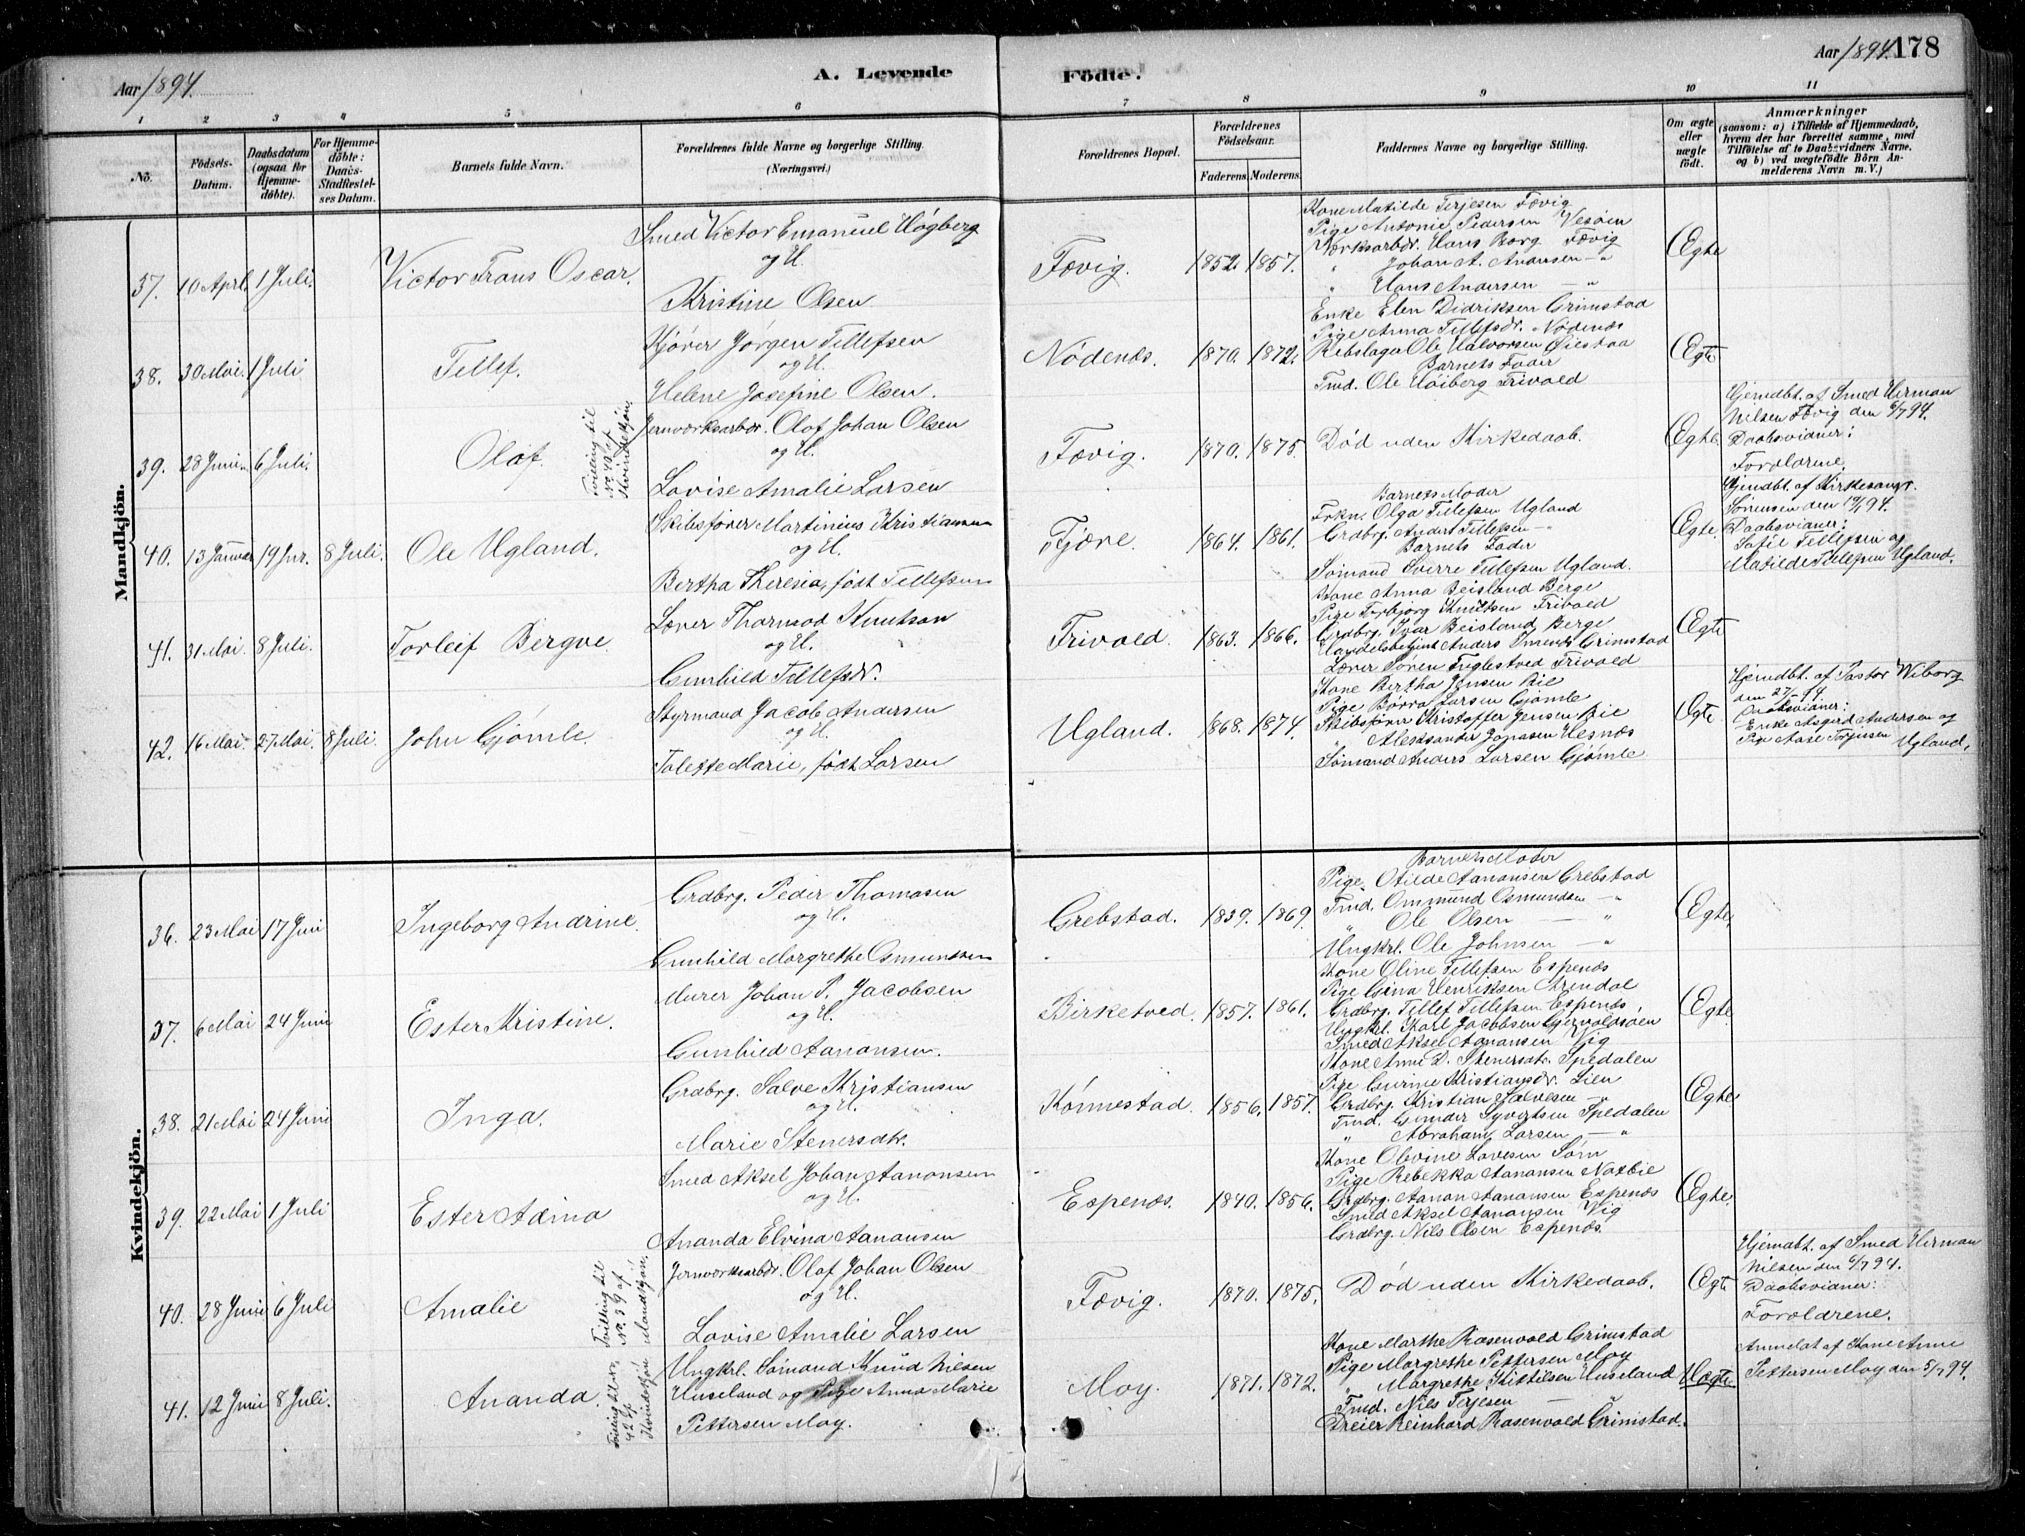 Aar 1894.
A. Levende Fødte.
Aar 1894. 178
1 2 3 4 5 6 7 8 9 10 11
No.
Fødsels-Datum.
Daabsdatum (ogsaa for Hjemmedøbte).
For Hjemmedøbte: Daabs-Stadfæstelses Datum.
Barnets fulde Navn.
Forældrenes fulde Navne og borgerlige Stilling. (Næringsvei.)
Forældrenes Bopæl.
Forældrenes Fødselsaar.
Faderens. Moderens.
Faddernes Navne og borgerlige Stilling.
Om ægte eller uægte født.
Anmærkninger
(saasom: a) i Tilfælde af Hjemmedaab, hvem der har forrettet samme, med Tilføielse af to Daabsvidners Navne, og b) ved uægtefødte Børn Anmelderens Navn m. V.)
Mandkjön.
37. 10 Apr. 1 Juli. Victor Frans Oscar.
Smed Victor Emanuel Högberg
og H.
Kristine Olsen
Fævig. 1852. 1857.
Kone Matilde Terjesen Fævig
Pige Antonie Pedersen Vesøen
Værksarbdr. Hans Borg Fævig
" Johan A. Andersen - "
" Hans Andersen - "
Egte
38. 30 Mai. 1 Juli Tellef.
Kjører Jørgen Tellefsen
og H.
Helene Josefine Olsen.
Nødenæs. 1870. 1872.
Enke Elen Didriksen Grimstad
Pige Anna Tellefsdr. Nødenæs
Rebslager Ole Halvorsen Øiestad
Barnets Fader
Fmd. Ole Høiberg Frivold
Egte
39. 28 Juni. 6 Juli. Olaf.
Tvilling til No. 40 af Kvindekjøn.
Jernværksarbdr. Olaf Johan Olsen
og H.
Lovise Amalie Larsen
Fævig. 1870. 1875.
Død uden Kirkedaab.
Egte.
Hjemdbt. af Smed Herman
Nilsen Fævig den 6/7 94.
Daabsvidner:
Forældrene.
40. 13 Januar 19 Jnr. 8 Juli. Ole Ugland.
Skibsfører Martinius Kristiansen
og H.
Bertha Theresia, født Tellefsen
Fjære. 1864. 1861.
Barnets Moder
Frkn. Olga Tellefsen Ugland
Grdbrg. Anders Tellefsen - "
Barnets Fader
Sømand Sverre Tellefsen Ugland.
Egte.
Hjemdbt. af Kirkesanger
Sørensen den 19/1 94.
Daabsvidner:
Sofie Tellefsen og
Matilde Tellefsen Ugland.
41. 31 Mai. 8 Juli. Torleif Bergve.
Lærer Thormod Knutson
og H.
Gunhild Tellefsdr.
Frivold. 1863. 1866.
Kone Anna Beisland Berge
Pige Torbjørg Knutsen Frivold
Grdbrg. Ivar Beisland Berge
Handelsbetjent Anders Grimstad
Lærer Søren Fuglestved Frivold
Egte
42. 16 Mai. 27 Mai. 8 Juli. John Gjømle.
Styrmand Jacob Andersen
og H.
Talette Marie, født Larsen
Ugland. 1868. 1874.
Kone Bertha Jensen Bie
Pige Børra Larsen Gjømle
Skibsfører Kristoffer Jensen Bie
" Aleksander Jonasen Hesnæs
Sømand Anders Larsen Gjømle
Egte
Hjemdbt. af Pastor Wiborg
den 27/5 94.
Daabsvidner:
Enke Asgerd Andersen og
Pige Aase Terjesen Ugland.
Kvindekjön.
36. 23 Mai 17 Juni Ingeborg Andrine.
Grdbrg. Peder Thomasen
og H.
Gunhild Margrethe Osmundsen
Grebstad. 1839. 1869.
Barnets Moder
Pige. Otilde Aanonsen Grebstad
Fmd. Ommund Osmundsen - "
" Ole Olsen - "
Ungkrl. Ole Johnsen - "
Egte.
37. 6 Mai 24 Juni Ester Kristine.
Murer Johan P. Jacobsen
og H.
Gunhild Aanonsen.
Birketved. 1857. 1861.
Kone Oline Tellefsen Espenæs
Pige Gina Henriksen Arendal
Grdbrg. Tellef Tellefsen Espenæs
Ungkrl. Karl Jacobsen Gjervoldsøen
Smed Aksel Aanonsen Vig
Egte
38. 21 Mai 24 Juni Inga.
Grdbrg. Salve Kristiansen
og H.
Marie Stenersdtr.
Rønnestad. 1856. 1857.
Kone Anne D. Stenersdtr. Spedalen
Pige Gurine Kristiansdr. Lien
Grdbrg. Kristian Salvesen - "
Fmd. Gunder Syvertsen Spedalen
" Abraham Larsen - "
Egte
39. 22 Mai 1 Juli Ester Adina
Smed Aksel Johan Aanonsen
og H.
Ananda Elvina Aanonsen
Espenæs. 1840. 1856.
Kone Olevine Lovesen Søm
Pige Rebekka Aanonsen Natvie
Grdbrg. Aanon Aanonsen Espenæs
Smed Aksel Aanonsen Vig
Grdbrg. Nils Olsen Espenæs.
Egte.
40. 28 Juni 6 Juli Amalie
Tvilling til No. 39 af Mandkjøn.
Jernværksarbdr. Olaf Johan Olsen
og H.
Lovise Amalie Larsen
Fævig. 1870. 1875.
Død uden Kirkedaab.
Egte
Hjemdbt. af Smed Herman
Nilsen den 6/7 94.
Daabsvidner:
Forældrene.
41. 12 Juni 8 Juli. Ananda.
Tvilling til No. 42 af Kvindekjøn
Ungkrl. Sømand Knud Nilsen
Huseland og Pige Anna Marie
Pettersen Moy.
Moy. 1871. 1872.
Kone Marthe Rosenvold Grimstad
Pige Margrethe Pettersen Moy
" Margrethe Kittelsen Huseland
Fmd. Nils Terjesen - "
Dreier Reinhard Rosenvold Grimstad.
Uægte
Anmeldt af Kone Anne
Pettersen Moy den 5/7 94.